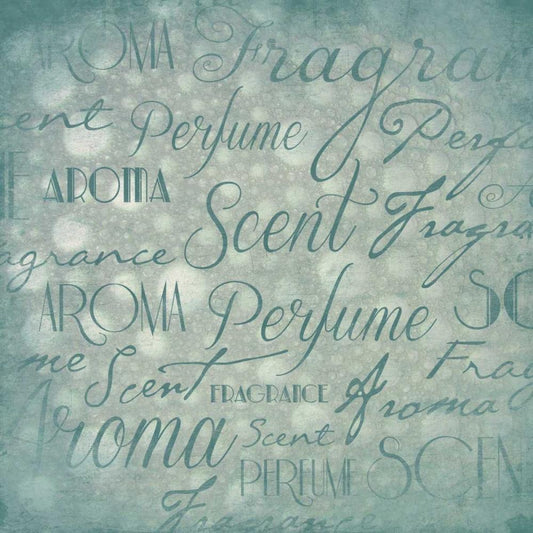 AROMA Fragran
cent Perfume Perfu
ME AROMA Scent Fragra
agrance
AROMA Perfume SC
me Scent FRAGRANCE Aroma Frag
Aroma Scent
PERFUME SCEN
Fragrance